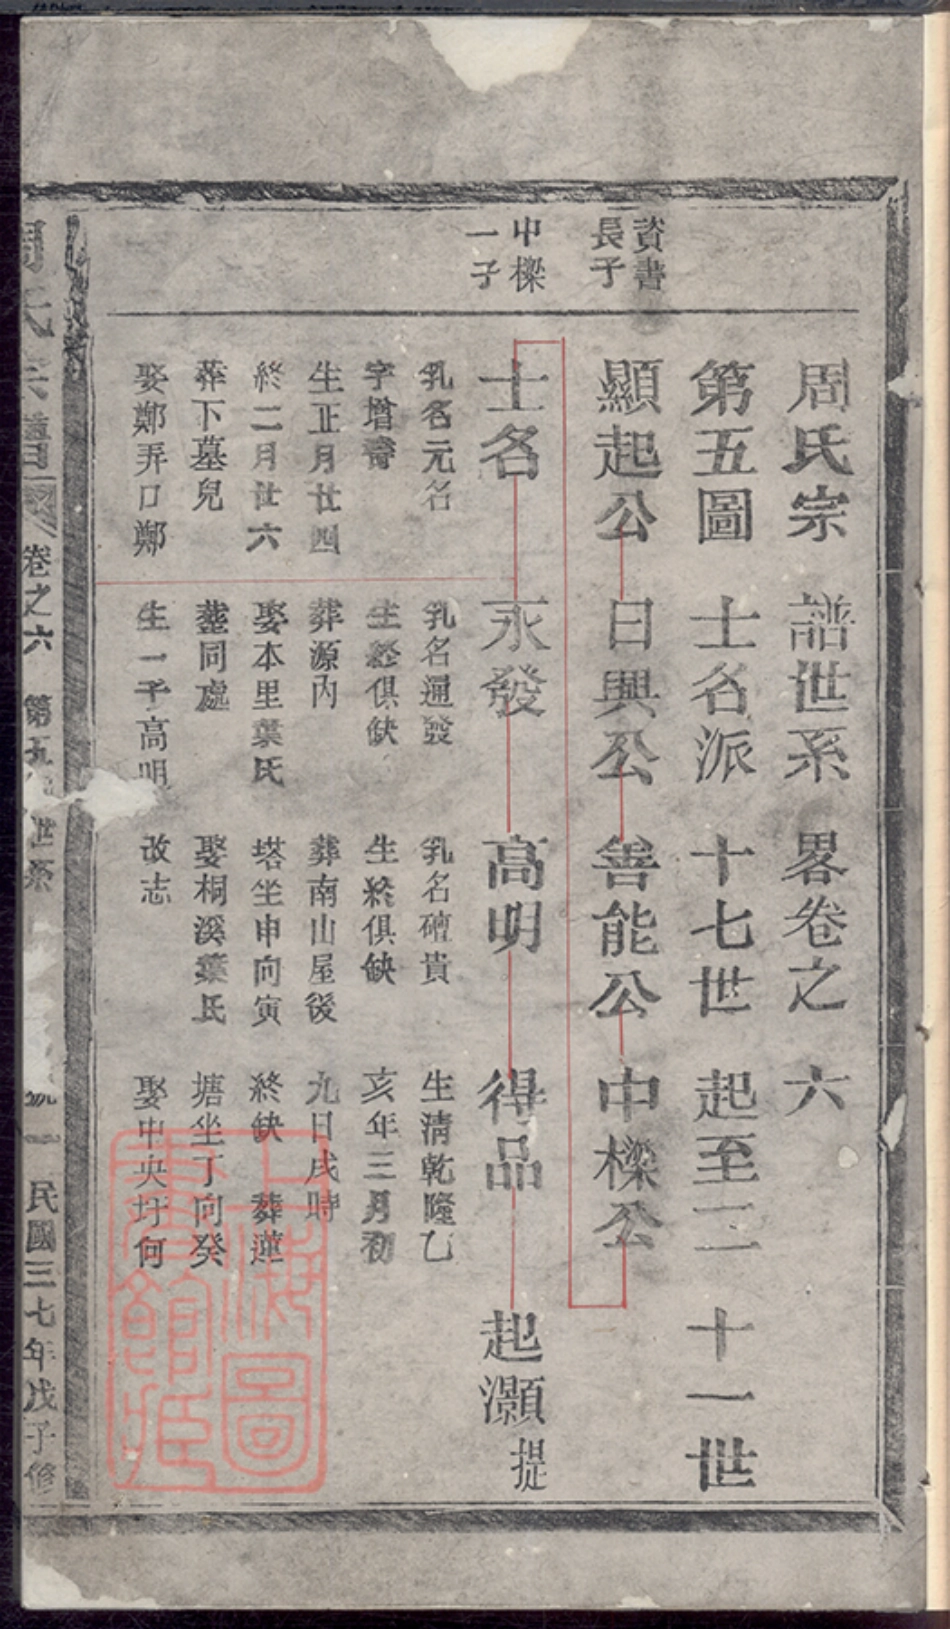 周氏宗譜世系畧卷之六
第五圖士名派十七世起至二十一世
資書
長子
顯起公日興公善能公中樑公
中樑
一子
士名永發高明得品起灝提
乳名元名
字增壽
生正月廿四
終二月廿六
葬下墓兒
娶鄭弄口鄭
乳名通發
生終俱缺
葬源內
娶本里葉氏
塟同處
生一子高明
乳名礶貴
生終俱缺
葬南山屋後
塔坐申向寅
娶桐溪葉氏
改志
生清乾隆乙
亥年三月初
九日戌時
終缺 葬蓮
塘坐丁向癸
娶中央圩何
周氏宗譜 卷之六 第五 世系 民國三七年戊子修
上海圖書館藏